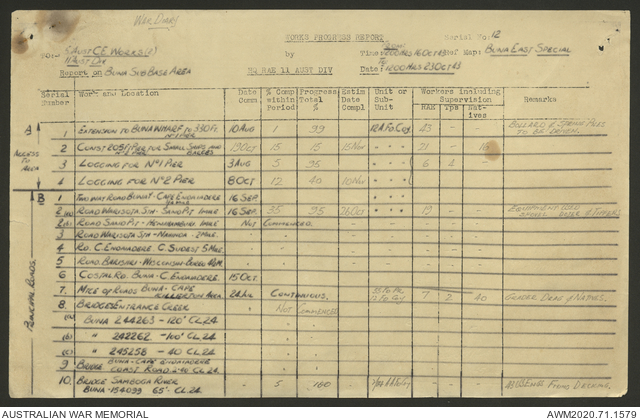 WAR DIARY
WORKS PROGRESS REPORT
Serial No: 12
TO:- S/AUST CE WORKS (P)
11 AUST DIV
by
Time: 1200 HRS 16 OCT 43 of Map: BUNA EAST SPECIAL
To
Report on BUNA SUB BASE AREA
HQ RAE 11 AUST DIV
Date: 1200 HRS 23 OCT 43
Serial Number Work and Location Date Comm % Comp within Period Progress Total % Estim Date Compl Unit or Sub-Unit Workers including Supervision Remarks
RAE Tps Natives
A
ACCESS TO AREA
1 EXTENSION TO BUNA WHARF TO 330 FT. 10 AUG 1 99 12 A Fd Coy 43 BOLLARD & SPRING PILES TO BE DRIVEN.
2 CONST 205 FT PIER FOR SMALL SHIPS AND BARGES 19 OCT 15 15 15 NOV " " " 21 - 16
3 LOGGING FOR No 1 PIER 3 AUG 5 95 " " " 6 4 -
4 LOGGING FOR No 2 PIER 8 OCT 12 40 10 NOV " " "
B
PRINCIPAL ROADS.
1 TWO WAY ROAD BUNA - CAPE ENDAIADERE 16 SEP. " " "
2 ROAD WARISOTA STN - SAND PIT 1 MILE 16 SEP 35 95 26 OCT " " " 19 - -
2(a) ROAD SAND PIT - 1 MILE NOT COMMENCED.
3 ROAD WARISOTA STN - 2 MILE
4 RD. C. ENDAIADERE C. SUDEST 5 MILE
5 ROAD
6 COSTAL RD. BUNA - C. ENDAIADERE 15 OCT.
7 MTCE OF ROADS BUNA - CAPE KILLERTON AREA 24 AUG CONTINUOUS. 12 Fd Coy 7 2 40 GRADER DRAG & NATIVES.
8 BRIDGE ENTRANCE CREEK NOT COMMENCED
(a) BUNA 244263 - 120' CL 24.
(b) " 242262 - 100' CL 24.
(c) " 245258 - 40 CL 24.
9 BRIDGE BUNA - CAPE ENDAIADERE COAST ROAD 2-40 CL 24.
10. BRIDGE SAMBOGA RIVER 5 100
BUNA - 154099 65' CL 24.
AUSTRALIAN WAR MEMORIAL
AWM2020.71.1579